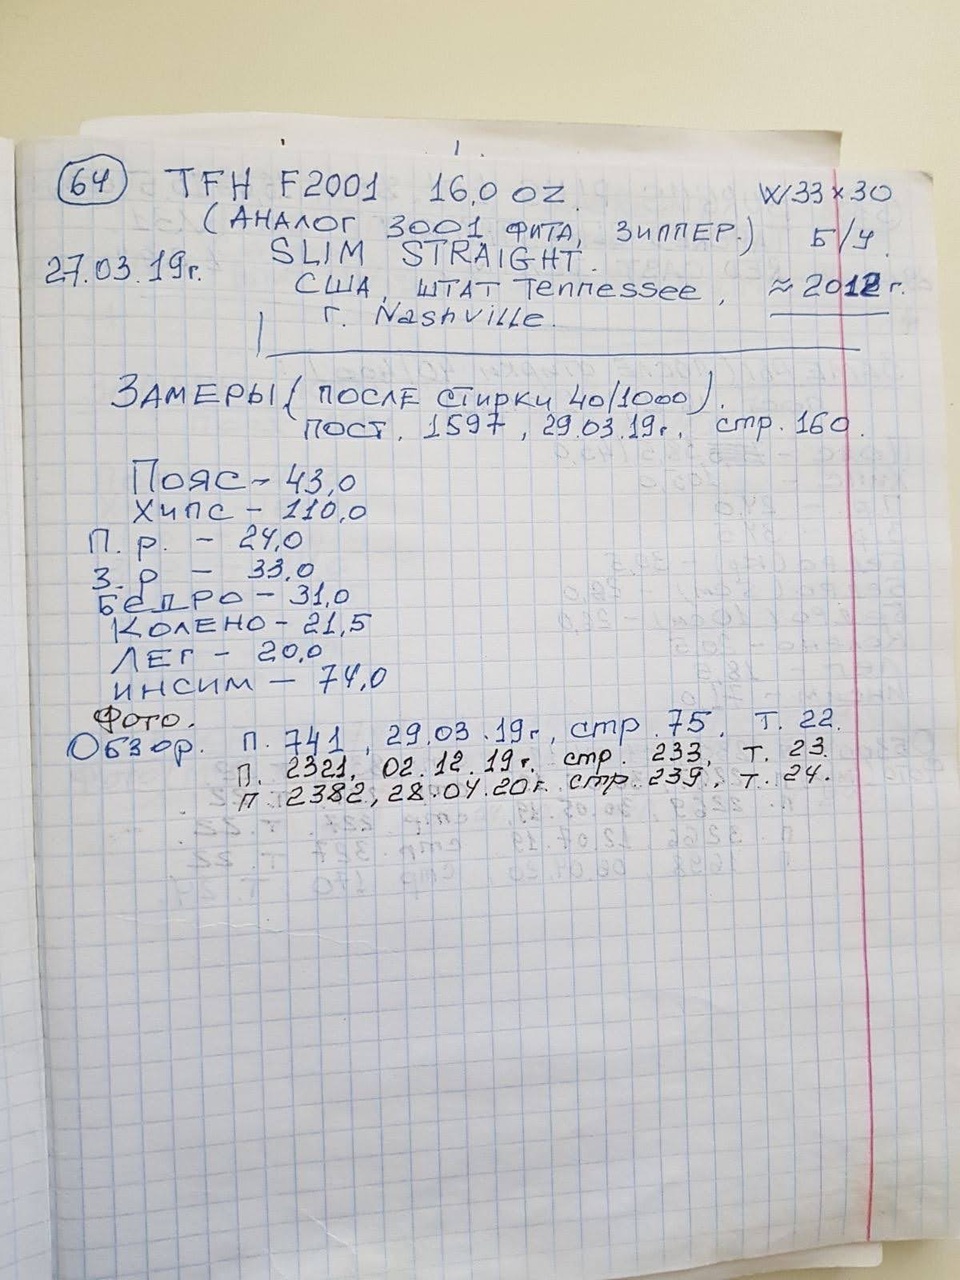 64 TFH F2001 16,0 OZ. W33×30
(АНАЛОГ 3001 ФИТА, ЗИППЕР.) Б/У.
27.03.19г. SLIM STRAIGHT.
США, ШТАТ Tennessee, ≈ 2012 г.
г. Nashville.
ЗАМЕРЫ (ПОСЛЕ СТИРКИ 40/1000).
ПОСТ. 1597, 29.03.19г, стр. 160.
ПОЯС - 43,0
ХИПС - 110,0
П. р. - 24,0
З. Р - 33,0
БЕДРО - 31,0
КОЛЕНО - 21,5
ЛЕГ - 20,0
ИНСИМ - 74,0
Фото.
Обзор. П. 741, 29.03.19г, стр. 75, Т. 22.
П. 2321, 02.12.19г. стр. 233, т. 23.
П 2382, 28.04.20г. стр. 239, т. 24.